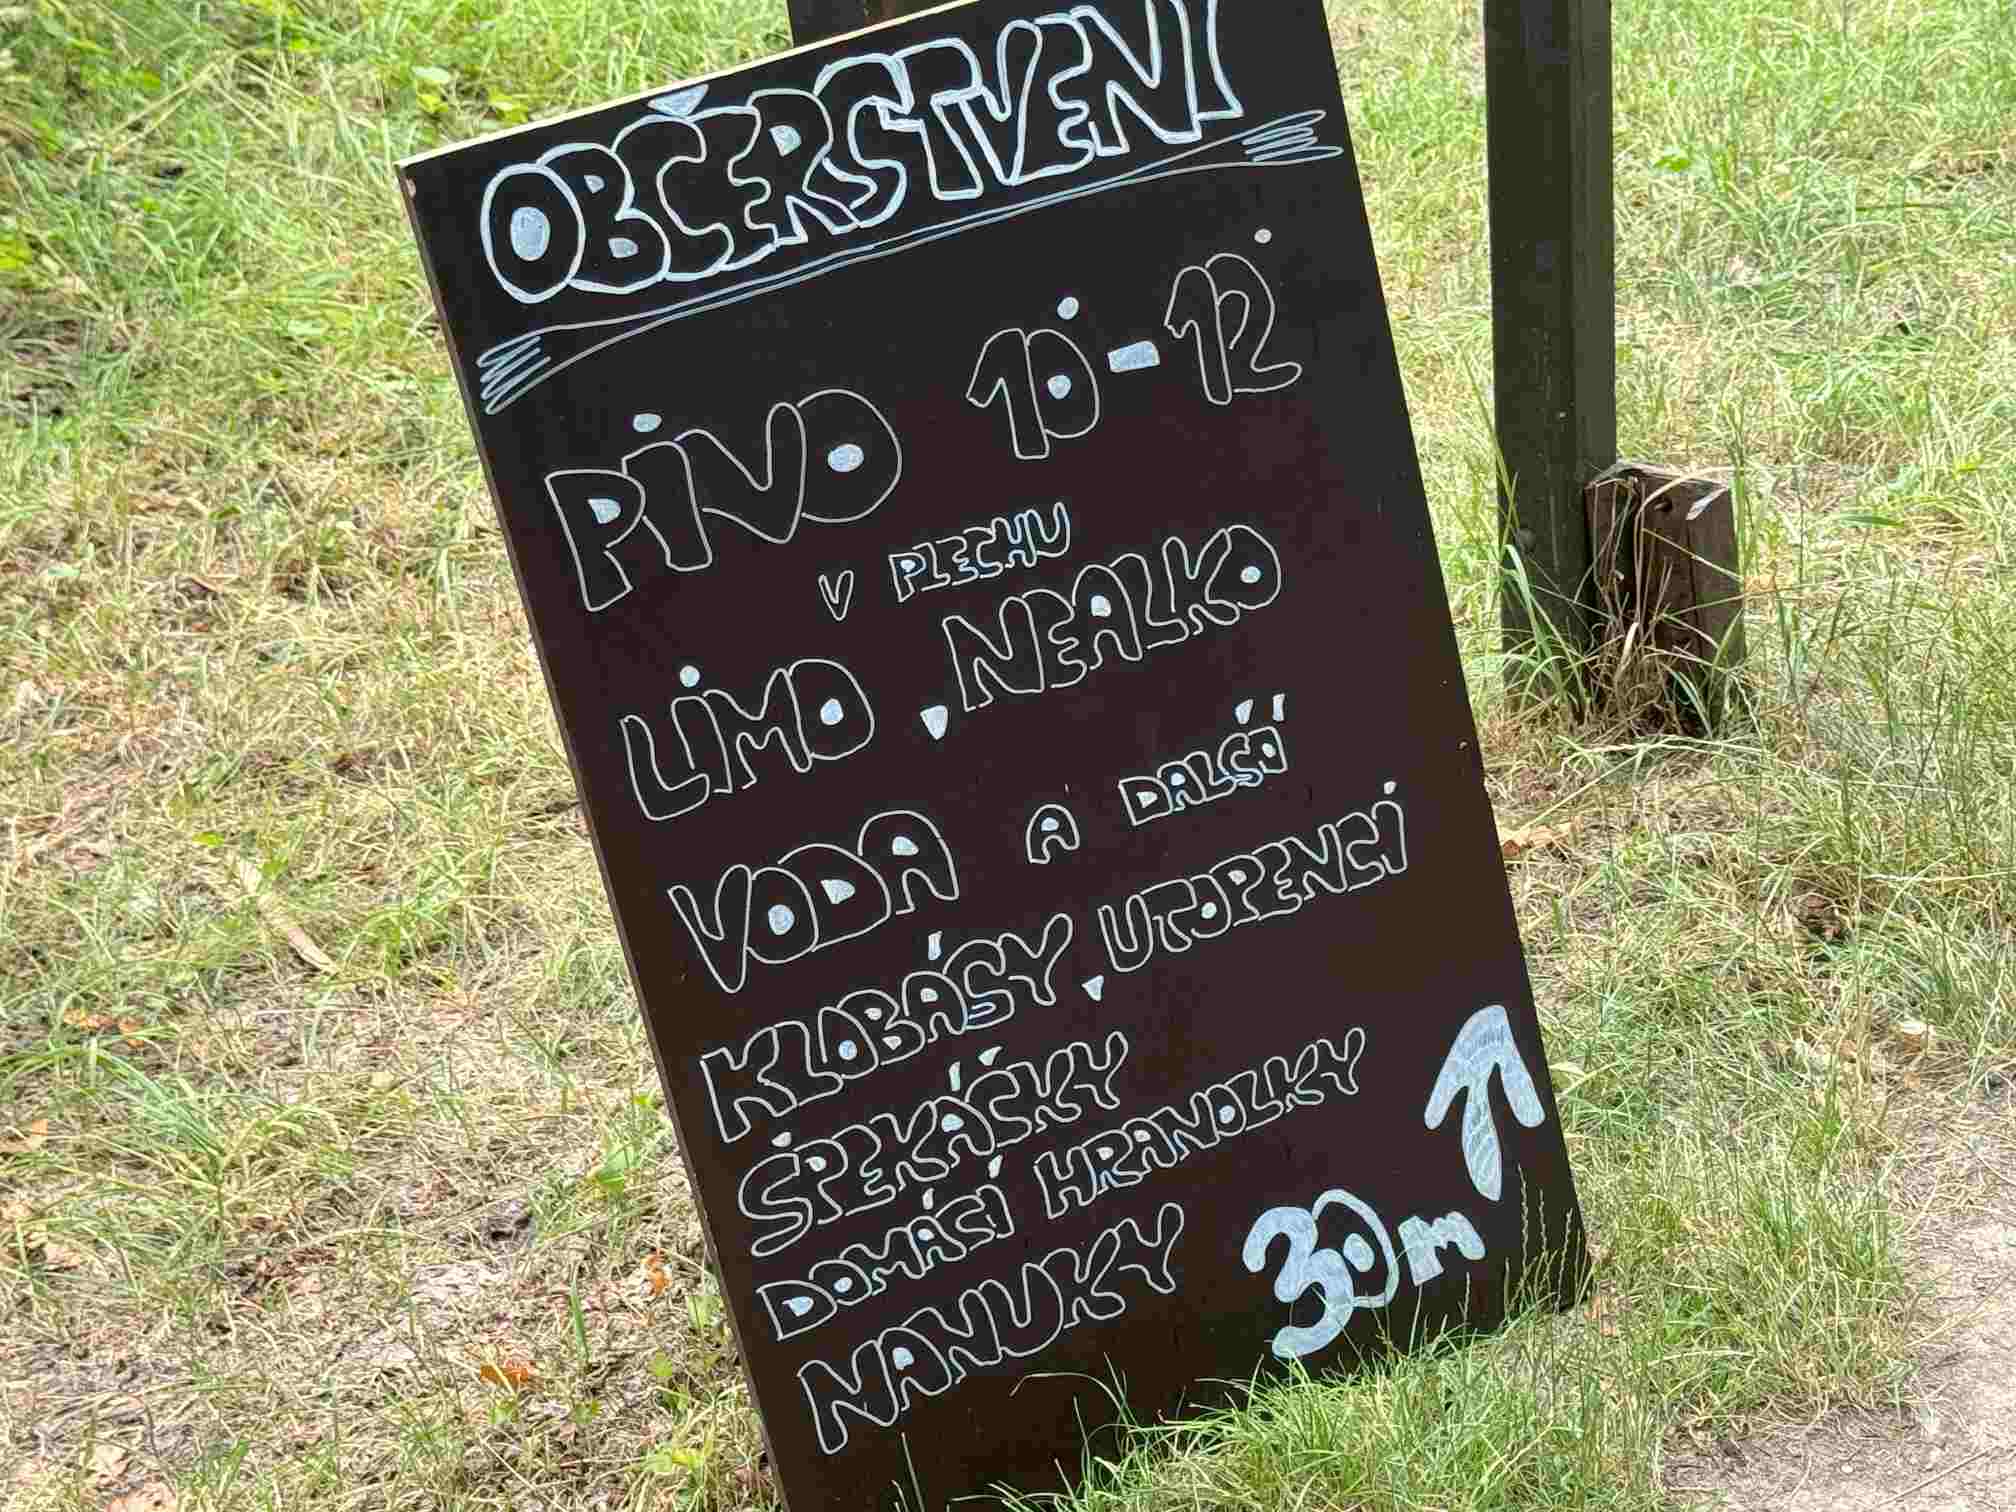 OBČERSTVENÍ
PIVO 10°-12°
V PLECHU
LIMO, NEALKO
VODA A DALŠÍ
KLOBÁSY, UTOPENCI
ŠPEKÁČKY
DOMÁCÍ HRANOLKY
NANUKY 30m